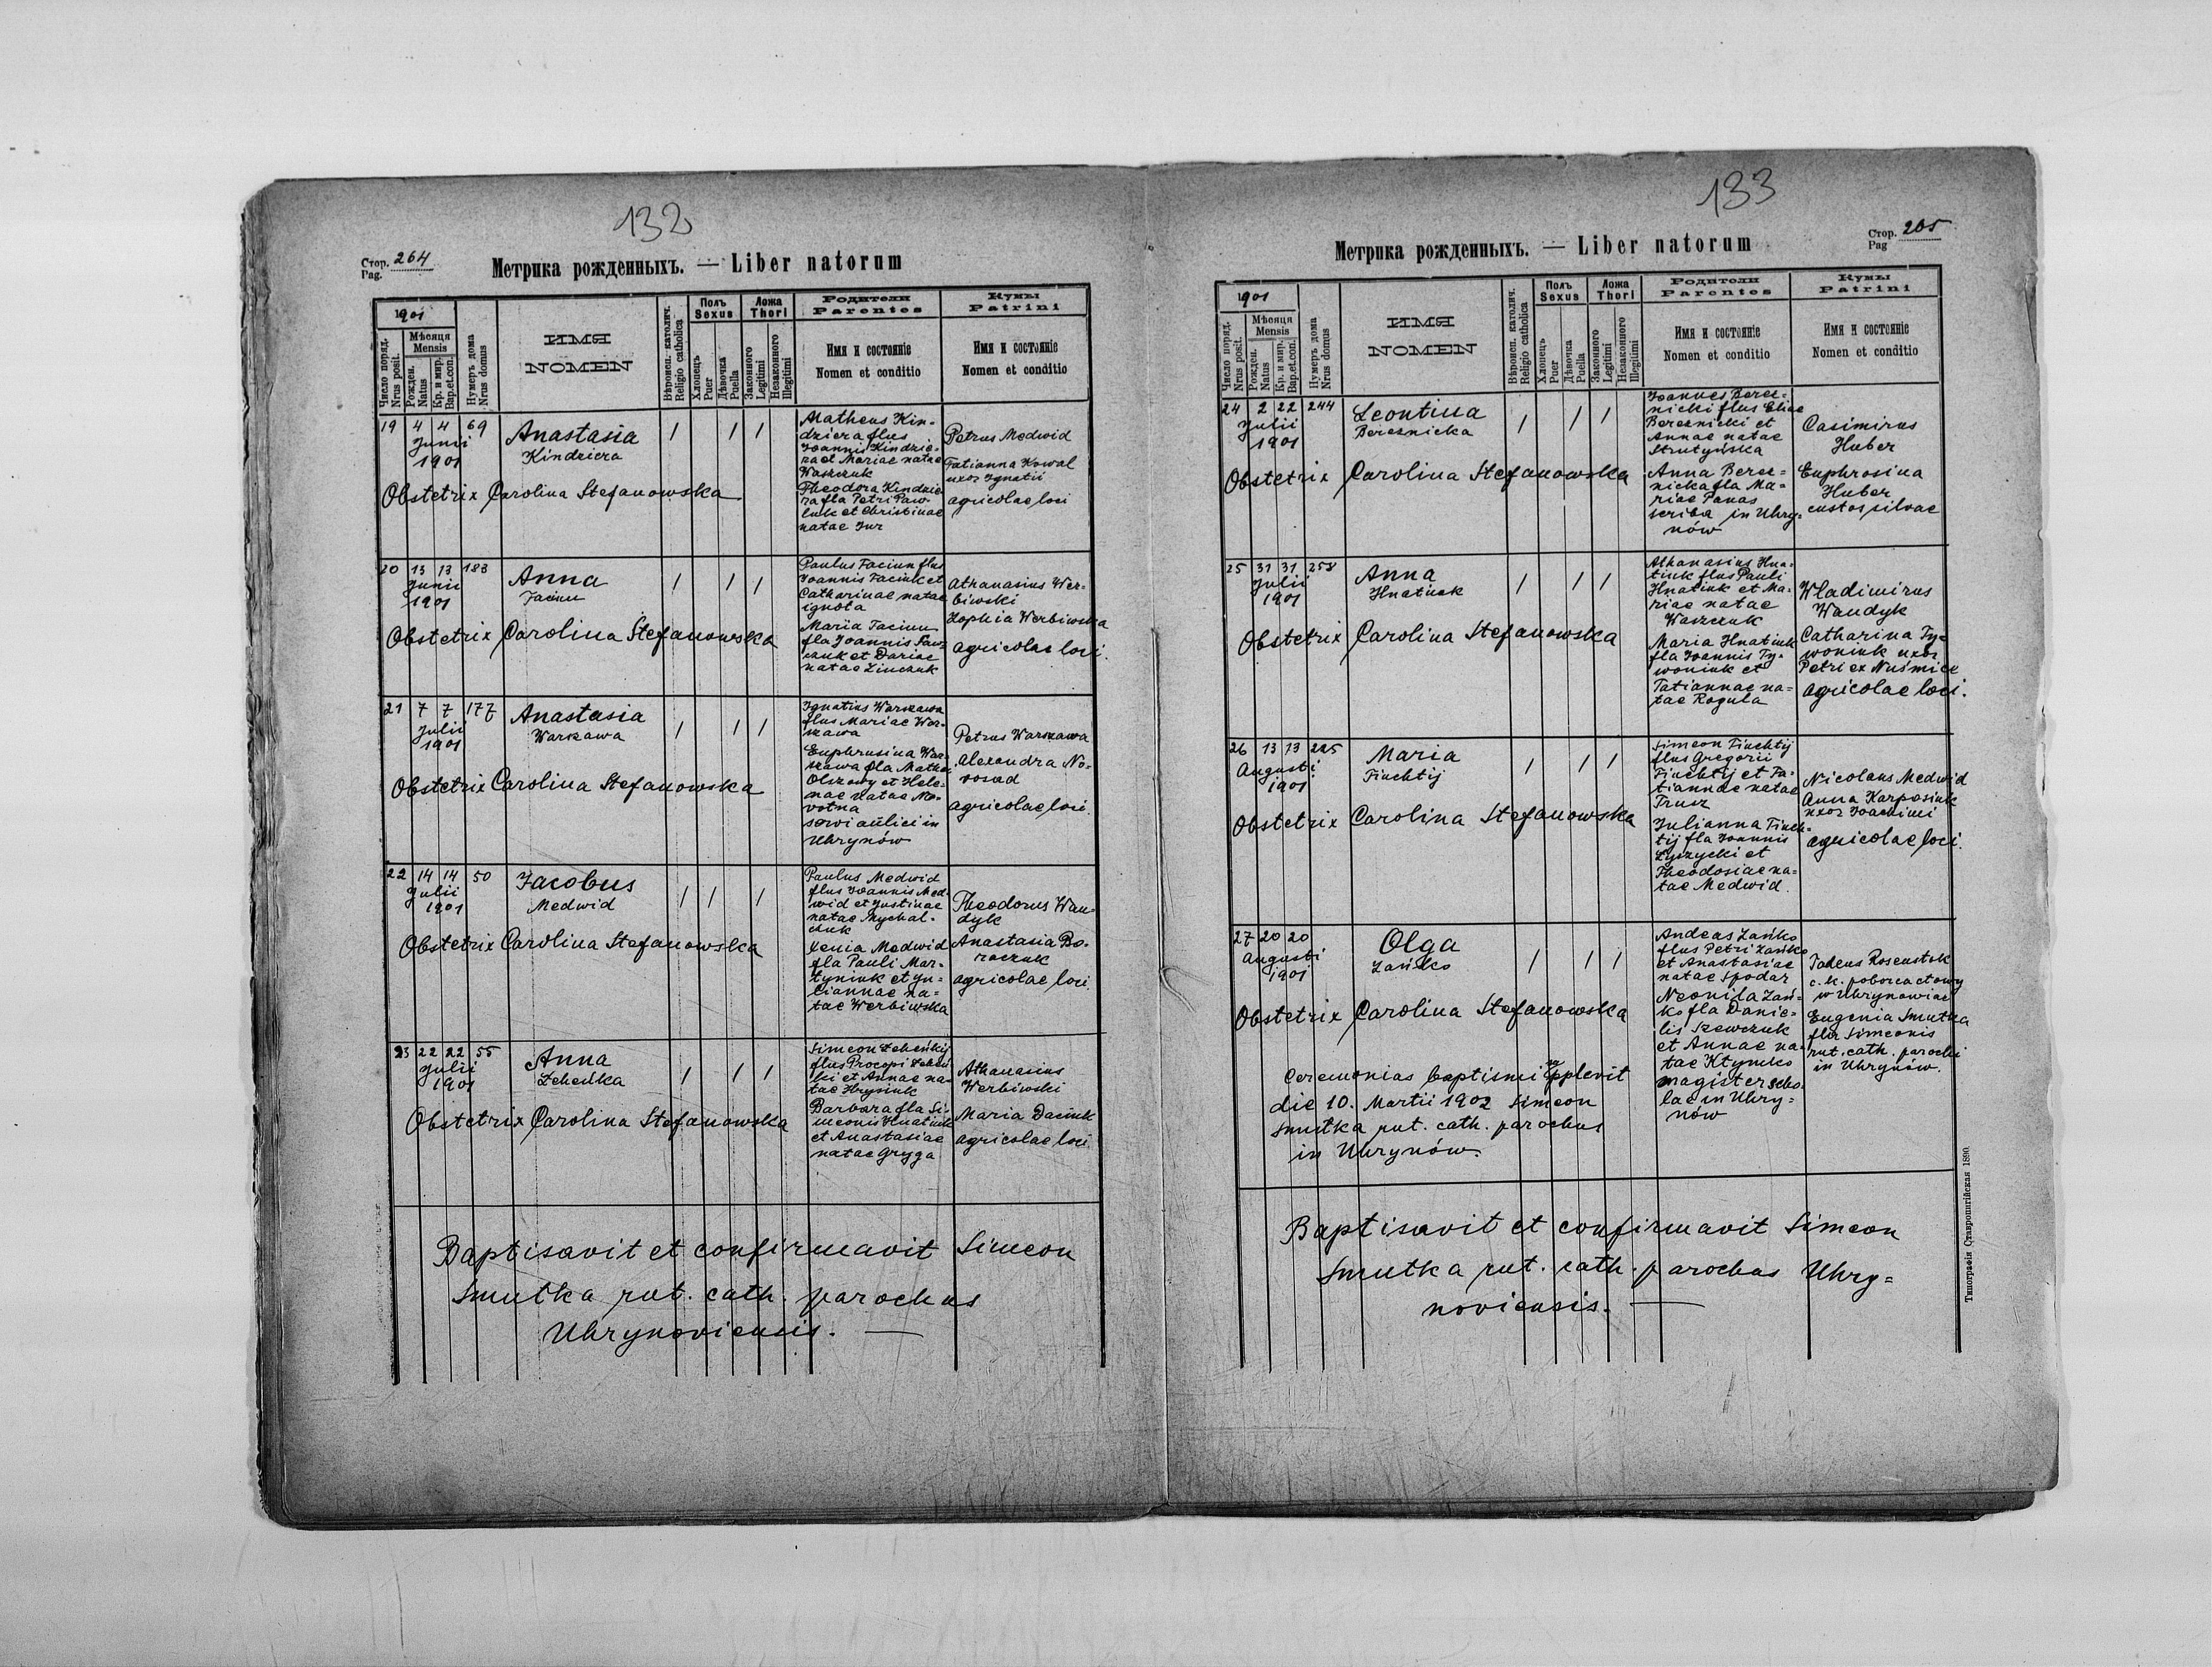 132
Стор. 264
Pag.
Метрика рожденныхъ. — Liber natorum
1901
Число поряд. Nrus posit.
Мѣсяця Mensis
Рожден. Natus
Кр. и мир. Bap. et con.
Нумеръ дома Nrus domus
ИМЯ
NOMEN
Вѣроисп. католич. Religio catholica
Полъ Sexus
Хлопець Puer
Дѣвочка Puella
Ложа Thori
Законного Legitimi
Незаконного Illegitimi
Родители Parentes
Имя и состояніе
Nomen et conditio
Кумы Patrini
Имя и состояніе
Nomen et conditio
19 4 4 69
Junii
1901
Anastasia
Kindziera
/ / /
Matheus Kin-
dziera flus
Joannis Kindzie-
ra et Mariae natae
Waszczuk
Theodora Kindzie-
ra fla Petri Paw-
luk et Christinae
natae Jur
Petrus Medwid
Tatianna Kowal
uxor Ignatii
agricolae loci
Obstetrix Carolina Stefanowska
20 13 13 183
Junii
1901
Anna
Faciun
/ / /
Paulus Faciun flus
Joannis Faciuk et
Catharinae natae
ignota
Maria Faciun
fla Joannis
et Dariae
natae Zinchuk
Athanasius Wer-
biwski
Zophia Werbiwska
agricolae loci.
Obstetrix Carolina Stefanowska
21 7 7 177
Julii
1901
Anastasia
Warszawa
/ / /
Ignatius Warszawa
flus Mariae War-
szawa
Euphrusina War-
szawa fla Mathei
Olszowy et Hele-
nae natae No-
votna
servi aulici in
Uhrynów
Petrus Warszawa
Alexandra No-
vosad
agricolae loci.
Obstetrix Carolina Stefanowska
22 14 14 50
Julii
1901
Jacobus
Medwid
/ / /
Paulus Medwid
flus Joannis Med-
wid et Justinae
natae Mychal-
chuk
Xenia Medwid
fla Pauli Mar-
tyniuk et Ju-
liannae na-
tae Werbiwska
Theodorus Wan-
dyk
Anastasia Bo-
raczuk
agricolae loci.
Obstetrix Carolina Stefanowska
23 22 22 55
Julii
1901
Anna
Zeheńka
/ / /
Simeon Zeheńkij
flus Procopi Zeheń-
ki et Annae na-
tae Hrysiuk
Barbara fla Si-
meonis Hnatiuk
et Anastasiae
natae Gryga
Athanasius
Werbiwski
Maria Daciuk
agricolae loci
Obstetrix Carolina Stefanowska
Baptisavit et confirmavit Simeon
Smutka rut. cath. parochus
Uhrynoviensis. —
133
Стор. 265
Pag
Метрика рожденныхъ. — Liber natorum
1901
Число поряд. Nrus posit.
Мѣсяця Mensis
Рожден. Natus
Кр. и мир. Bap. et con.
Нумеръ дома Nrus domus
ИМЯ
NOMEN
Вѣроисп. католич. Religio catholica
Полъ Sexus
Хлопець Puer
Дѣвочка Puella
Ложа Thori
Законного Legitimi
Незаконного Illegitimi
Родители Parentes
Имя и состояніе
Nomen et conditio
Кумы Patrini
Имя и состояніе
Nomen et conditio
24 2 22 244
Julii
1901
Leontina
Bereznicka
/ / /
Joannes Berez-
nicki flus Eliae
Bereznicki et
Annae natae
Strutyńska
Anna Berez-
nicka fla Ma-
riae Panas
scriba in Uhry-
nów
Casimirus
Huber
Euphrosina
Huber
custos silvae
Obstetrix Carolina Stefanowska
25 31 31 258
Julii
1901
Anna
Hnatiuk
/ / /
Athanasius Hna-
tiuk flus Pauli
Hnatiuk et Ma-
riae natae
Waszczuk
Maria Hnatiuk
fla Joannis Ty-
woniuk et
Tatiannae na-
tae Rogula
Wladimirus
Wandyk
Catharina Ty-
woniuk uxor
Petri ex Nuśmice
agricolae loci.
Obstetrix Carolina Stefanowska
26 13 13 225
Augusti
1901
Maria
Tiuchtij
/ / /
Simeon Tiuchtij
flus Gregorii
Tiuchtij et Ta-
tiannae natae
Trusz
Julianna Tiuch-
tij fla Joannis
Zyszycki et
Theodosiae na-
tae Medwid.
Nicolaus Medwid
Anna Karposiuk
uxor Joachimi
agricolae loci.
Obstetrix Carolina Stefanowska
27 20 20
Augusti
1901
Olga
Zańko
/ / /
Andeas Zańko
flus Petri Zańko
et Anastasiae
natae Spodar
Neonila Zań-
ko fla Danie-
lis Szewczuk
et Annae na-
tae Ktymko
magister scho-
lae in Uhry-
nów
Tadeus Rosenstok
c. k. poborca cłowy
w Uhrynowie
Eugenia Smutka
fla Simeonis
rut. cath. parochi
in Uhrynów.
Obstetrix Carolina Stefanowska
Ceremonias baptismi supplevit
die 10. Martii 1902 Simeon
Smutka rut. cath. parochus
in Uhrynów.
Baptisavit et confirmavit Simeon
Smutka rut. cath. parochus Uhry-
noviensis. —
Типографія Ставропигійская 1890.